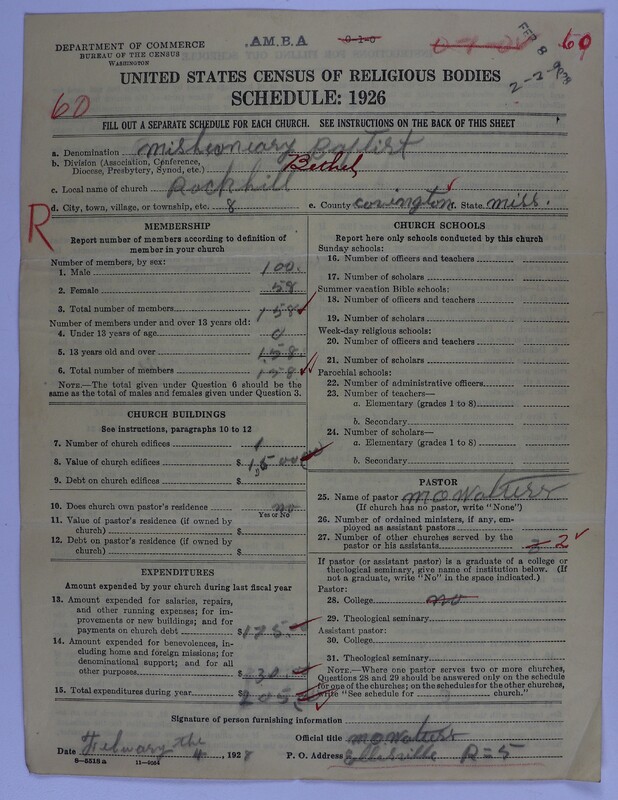 A.M.B.A
0-1-0
FEB 8
60
DEPARTMENT OF COMMERCE
BUREAU OF THE CENSUS
WASHINGTON
2-2-
UNITED STATES CENSUS OF RELIGIOUS BODIES
60
SCHEDULE: 1926
FILL OUT A SEPARATE SCHEDULE FOR EACH CHURCH. SEE INSTRUCTIONS ON THE BACK OF THIS SHEET
a. Denomination missheoneary Baptist
b. Division (Association, Conference, Diocese, Presbytery, Synod, etc.) Bethel
c. Local name of church Rockhill
d. City, town, village, or township, etc. 8 e. County covington f. State miss.
R
MEMBERSHIP
Report number of members according to definition of
member in your church
Number of members, by sex:
1. Male 100.
2. Female 58
3. Total number of members 158
Number of members under and over 13 years old:
4. Under 13 years of age 0
5. 13 years old and over 158
6. Total number of members 158
NOTE.—The total given under Question 6 should be
same as the total of males and females given under Question 3.
CHURCH BUILDINGS
See instructions, paragraphs 10 to 12
7. Number of church edifices 1
8. Value of church edifices $
9. Debt on church edifices $
10. Does church own pastor's residence no
Yes or No
11. Value of pastor's residence (if owned by
church) $
12. Debt on pastor's residence (if owned by
church) $
EXPENDITURES
Amount expended by your church during last fiscal year
13. Amount expended for salaries, repairs,
and other running expenses; for im-
provements or new buildings; and for
payments on church debt $175.
14. Amount expended for benevolences, in-
cluding home and foreign missions; for
denominational support; and for all
other purposes $30.
15. Total expenditures during year $205.
CHURCH SCHOOLS
Report here only schools conducted by this church
Sunday schools:
16. Number of officers and teachers
17. Number of scholars
Summer vacation Bible schools:
18. Number of officers and teachers
19. Number of scholars
Week-day religious schools:
20. Number of officers and teachers
21. Number of scholars
Parochial schools:
22. Number of administrative officers
23. Number of teachers—
a. Elementary (grades 1 to 8)
b. Secondary
24. Number of scholars—
a. Elementary (grades 1 to 8)
b. Secondary
PASTOR
25. Name of pastor
(If church has no pastor, write "None")
26. Number of ordained ministers, if any, em-
ployed as assistant pastors
27. Number of other churches served by the
pastor or his assistants 2
If pastor (or assistant pastor) is a graduate of a college or
theological seminary, give name of institution below. (If
not a graduate, write "No" in the space indicated.)
Pastor:
28. College no
29. Theological seminary
Assistant pastor:
30. College
31. Theological seminary
NOTE.—Where one pastor serves two or more churches,
Questions 28 and 29 should be answered only on the schedule
for one of the churches; on the schedules for the other churches,
write "See schedule for church."
Signature of person furnishing information
Official title
Date Febuary the 4, 1928 P. O. Address R=5
8-5518a 11-5064